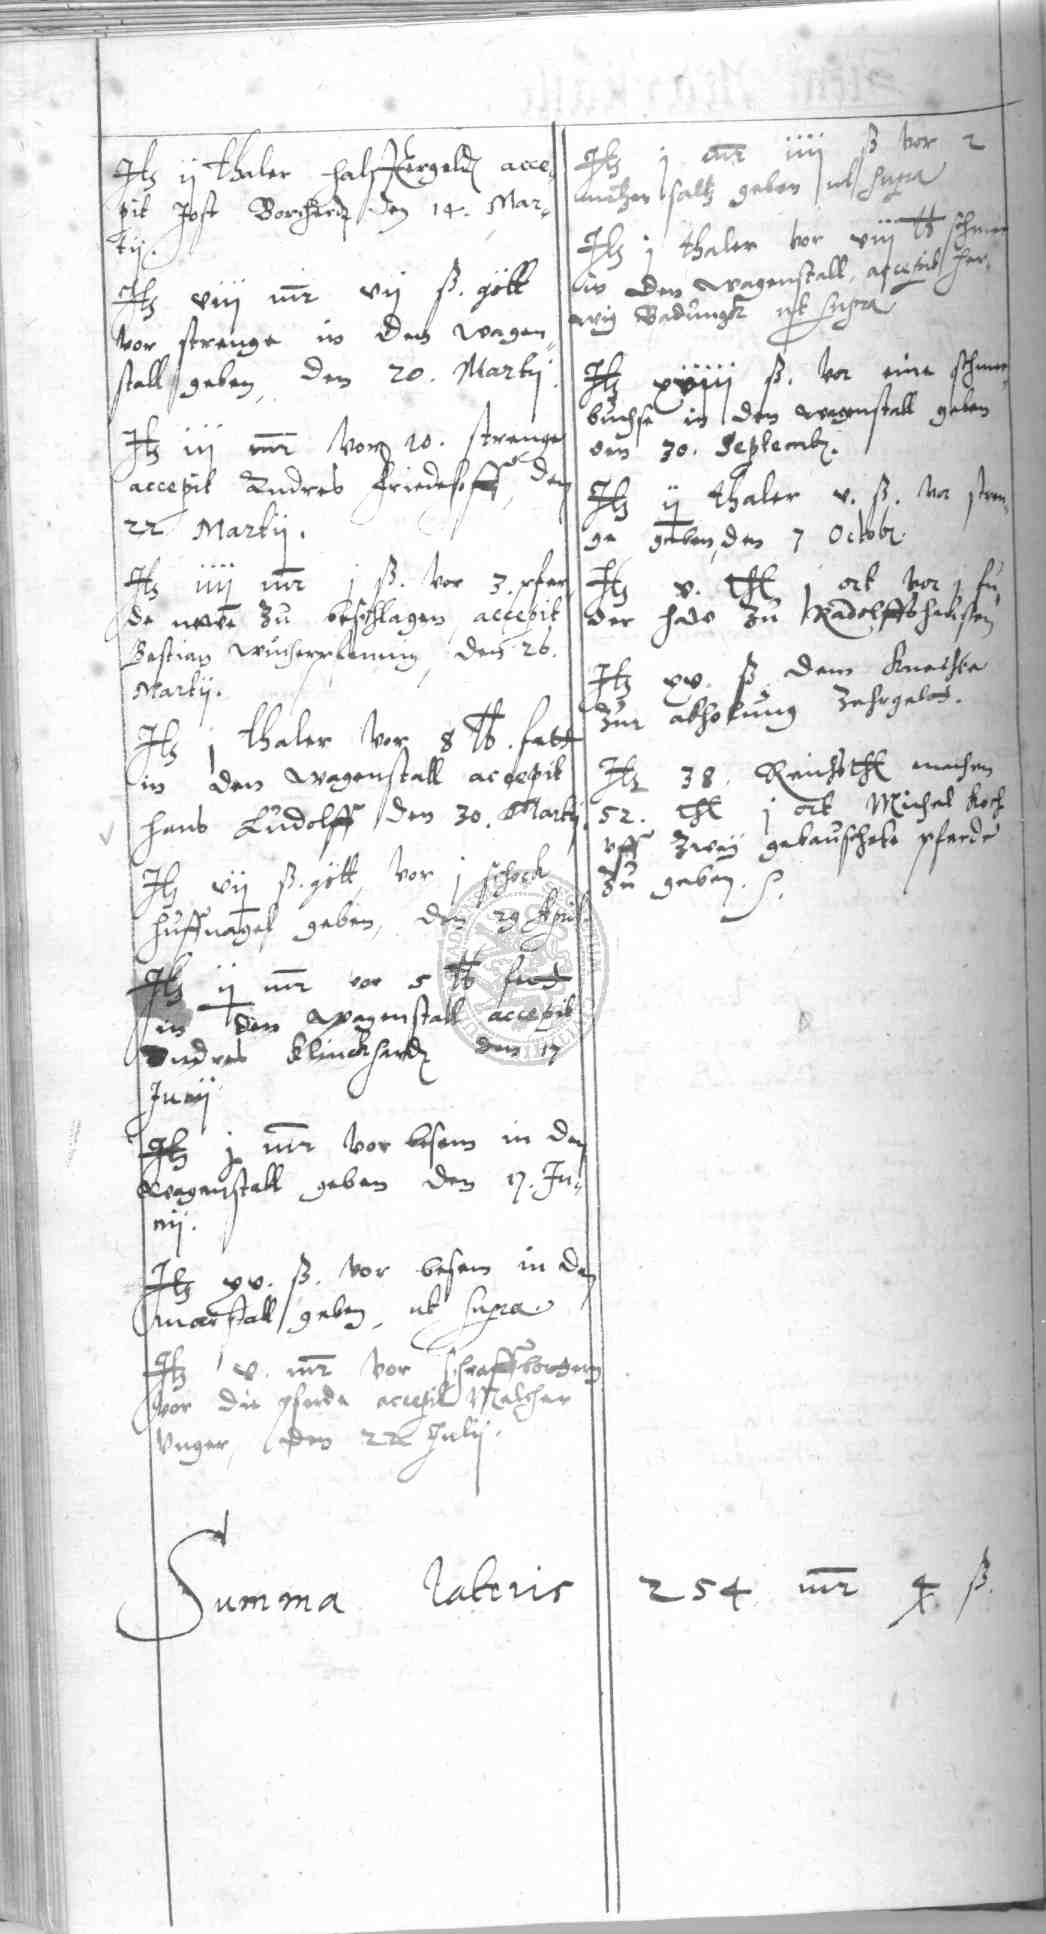 Itz ij thaler halfftergeld acce-
pit Jost Borcherdt den 14. Mar-
tij.
Itz viij mr vij ß. gött
vor strenge in den wagen-
stall geben, den 20. Martij.
Itz iij mr vor 10. strenge
accepit Andres Friedehoff, den
22 Martij.
Itz iiij mr j ß. vor 3. pfer-
de newe zu beschlagen, accepit
Bestian den 26.
Martij.
Itz j thaler vor 8 lb. fett
in den wagenstall accepit
Hans Ludolff den 30. Martij.
Itz vij ß. gött, vor j schock
huffnagel geben, den 29 April.
Itz ij mr vor 5 lb fett
in den wagenstall accepit
Andres Klinckhardt den 17
Junij
Itz j mr vor besem in den
wagenstall geben den 17. Ju-
nij.
Itz xv. ß. vor besem in den
marstall geben, ut supra.
Itz v. mr vor
vor die pferde accepit Melcher
Unger, den 22 Julij.
Itz j mr iiij ß vor 2
metzen saltz geben ut supra
Itz j thaler vor viij lb schmer
in den wagenstall, accepit Her-
wig ut supra
Itz xviiij ß. vor eine schmer-
buchse in den wagenstall geben
den 30. Septemb.
Itz ij thaler v. ß. vor stren-
ge geben, den 7 Octobr.
Itz v. thl j ort vor j fu-
der haw zu Radolffshausen
Itz xv. ß dem Knechte
zur abholung zehrgeld.
Itz 38. Reichsthl machen
52. thl j ort Michel Koch
uff zwey gebauschete pferde
zu geben.
Summa lateris 254 mr 4 ß.